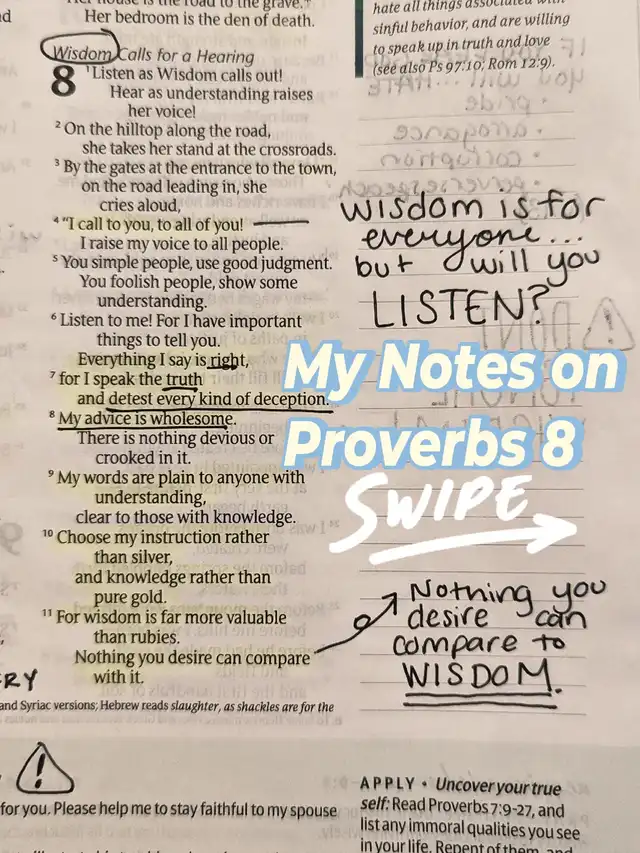 Her bedroom is the den of death.
Wisdom Calls for a Hearing
8 1 Listen as Wisdom calls out!
Hear as understanding raises
her voice!
2 On the hilltop along the road,
she takes her stand at the crossroads.
3 By the gates at the entrance to the town,
on the road leading in, she
cries aloud,
4 “I call to you, to all of you!
I raise my voice to all people.
5 You simple people, use good judgment.
You foolish people, show some
understanding.
6 Listen to me! For I have important
things to tell you.
Everything I say is right,
7 for I speak the truth
and detest every kind of deception.
8 My advice is wholesome.
There is nothing devious or
crooked in it.
9 My words are plain to anyone with
understanding,
clear to those with knowledge.
10 Choose my instruction rather
than silver,
and knowledge rather than
pure gold.
11 For wisdom is far more valuable
than rubies.
Nothing you desire can compare
with it.
and Syriac versions; Hebrew reads slaughter, as shackles are for the
for you. Please help me to stay faithful to my spouse
hate all things associated with
sinful behavior, and are willing
to speak up in truth and love
(see also Ps 97:10; Rom 12:9).
WISDOM is for
everyone...
but will you
LISTEN?
My Notes on
Proverbs 8
SWIPE
Nothing you
desire can
compare to
WISDOM.
APPLY • Uncover your true
self: Read Proverbs 7:9-27, and
list any immoral qualities you see
in your life. Repent of them, and